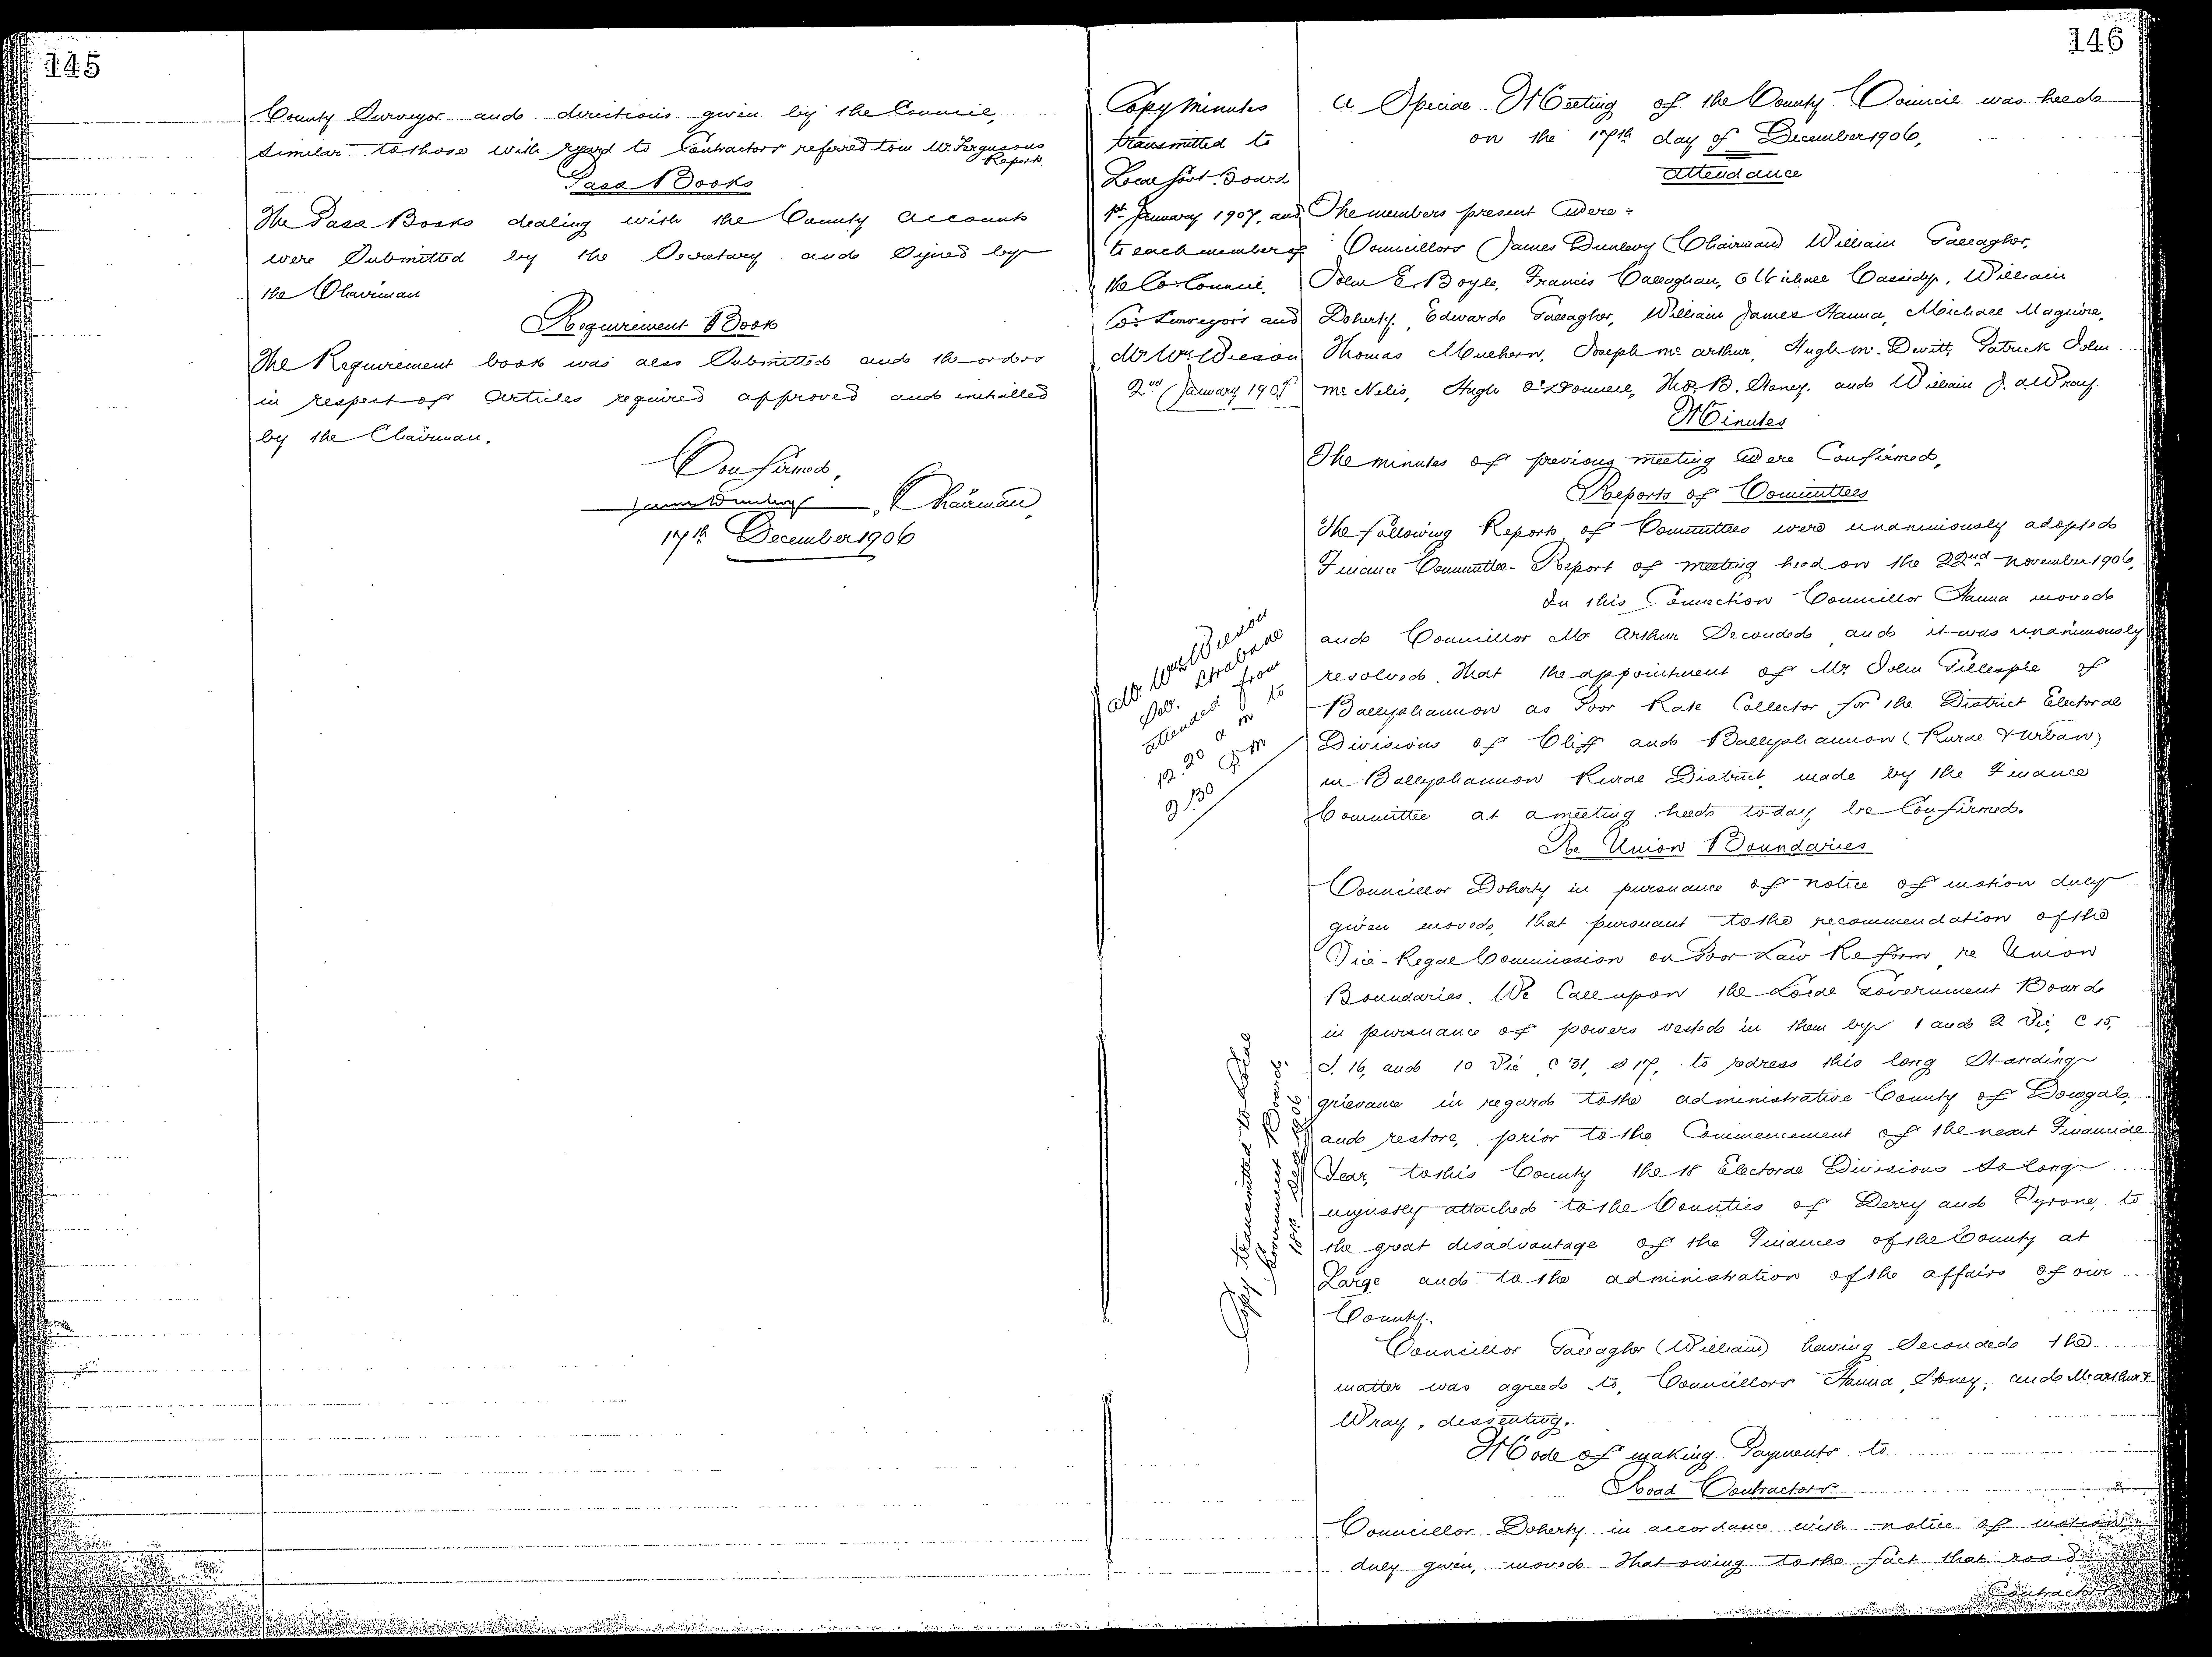 145
County Surveyor and directions given by the Council,
similar to those with regard to Contractors referred to in Mr. Fergusons
Report.
Pass Books
The Pass Books dealing with the County Accounts
were Submitted by the Secretary and Signed by
the Chairman
Requirement Book
The Requirement book was also Submitted and the orders
in respect of Articles required approved and initialled
by the Chairman.
Confirmed,
James Dunlevy, Chairman,
17th December 1906
146
Copy Minutes
transmitted to
Local Govt. Board
1st January 1907, and
to each member of
the Co. Council,
Co. Surveyors and
Mr Wm Wilson
2nd January 1907
A Special Meeting of the County Council was held
on the 17th day of December 1906,
Attendance
The members present were:
Councillors James Dunlevy (Chairman) William Gallagher,
John E. Boyle, Francis Callaghan, Michael Cassidy, William
Doherty, Edward Gallagher, William James Hanna, Michael Maguire,
Thomas Mulhern, Joseph Mc Arthur, Hugh Mc Devitt, Patrick John
Mc Nelis, Hugh O'Donnell, Thos. B. Stoney, and William J. A Wray.
Minutes
The minutes of previous meeting were Confirmed,
Reports of Committees
The following Reports of Committees were unanimously adopted
Finance Committee - Report of meeting held on the 22nd November 1906,
In this Connection Councillor Hanna moved
and Councillor Mc Arthur Seconded and it was unanimously
resolved. That the appointment of Mr John Gillespie of
Ballyshannon as Poor Rate Collector for the District Electoral
Divisions of Cliff and Ballyshannon (Rural & Urban)
in Ballyshannon Rural District, made by the Finance
Committee at a meeting held today, be Confirmed.
Mr Wm Wilson
Sol. Strabane
attended from
12.20 a m to
2.30 P.M
Re Union Boundaries
Councillor Doherty in pursuance of notice of motion duly
given moved, that pursuant to the recommendation of the
Vice-Regal Commission on Poor Law Reform, re Union
Boundaries. We Call upon the Local Government Board
in pursuance of powers vested in them by 1 and 2 Vic, C 15,
S. 16, and 10 Vic, C 31, S 17, to redress this long Standing
grievance in regard to the administrative County of Donegal,
and restore, prior to the Commencement of the next Financial
Year, to this County the 18 Electoral Divisions so long
unjustly attached to the Counties of Derry and Tyrone, to
the great disadvantage of the Finances of the County at
Large and to the administration of the affairs of our
County.
Copy transmitted to Local
Government Board.
18th Dec 1906
Councillor Gallagher (William) having Seconded the
matter was agreed to, Councillors Hanna, Stoney, and McArthur &
Wray, dissenting.
Mode of making Payments to
Road Contractors
Councillor Doherty in accordance with notice of motion
duly given, moved That owing to the fact that road
Contractors